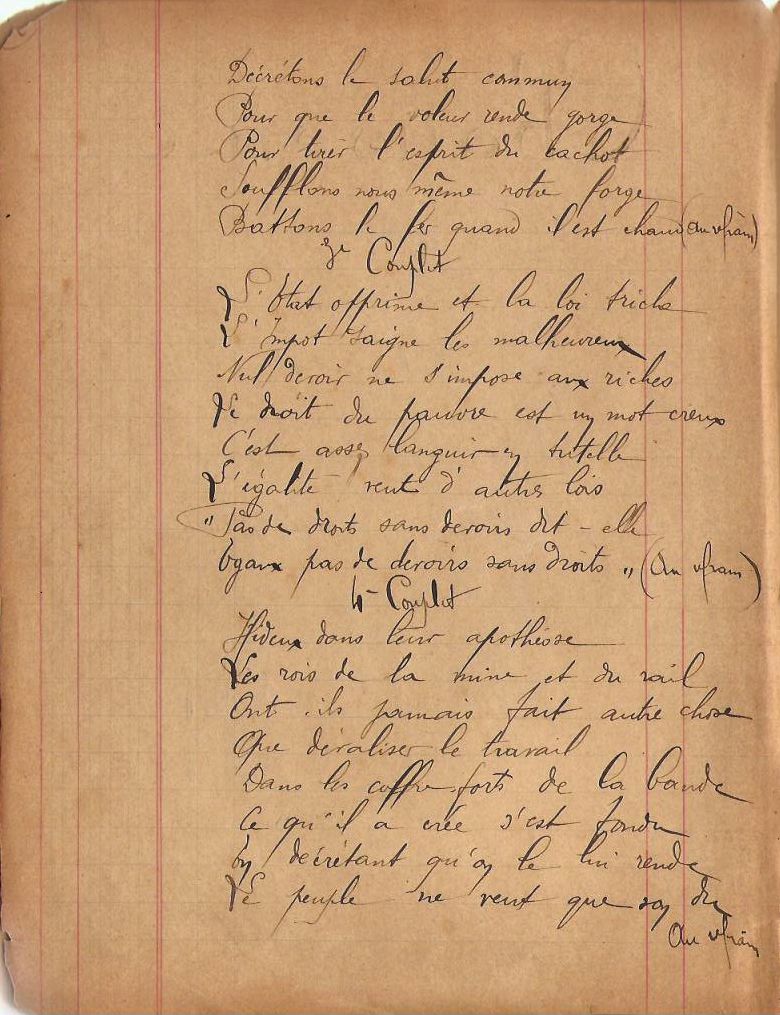 Décrétons le salut commun
Pour que le voleur rende gorge
Pour tirer l'esprit du cachot
Soufflons nous même notre forge
Battons le fer quand il est chaud (au refrain)
3e Couplet
L'Etat opprime et la loi triche
L'Impot saigne les malheureux
Nul devoir ne s'impose aux riches
Le droit du pauvre est un mot creux
C'est assez languir en tutelle
L'égalité veut d'autres lois
"Pas de droits sans devoirs dit-elle
Egaux pas de devoirs sans droits" (Au refrain)
4e Couplet
Hideux dans leur apothéose
Les rois de la mine et du rail
Ont ils jamais fait autre chose
Que dévaliser le travail
Dans les coffre forts de la bande
Ce qu'il a crée s'est fondu
En décrétant qu'on le lui rende
Le peuple ne veut que son du
Au refrain